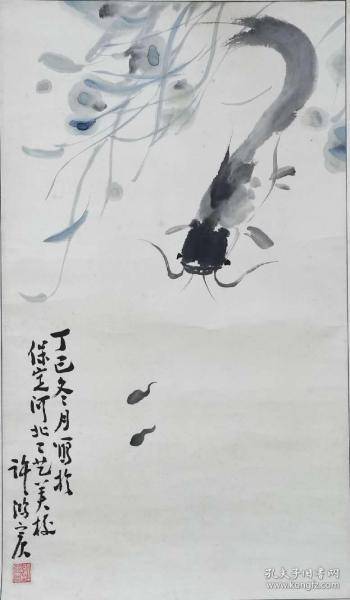 丁巳冬月写于
保定河北工艺美校
许鸿宾
孔夫子旧书网